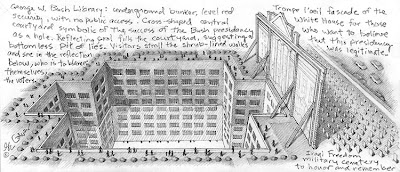 George W. Bush Library: underground bunker, level red
security, with no public access. Cross-shaped central
courtyard symbolic of the success of the Bush presidency
as a hole. Reflecting pool fills the courtyard, suggesting a
bottomless pit of lies. Visitors stroll the shrub-lined walks
and see in the reflection
below, who is to blame:
themselves,
the voters.
Trompe l'oeil fascade of the
White House for those
who want to believe
that this presidency
was legitimate.
Iraqi Freedom
military cemetery,
to honor and remember